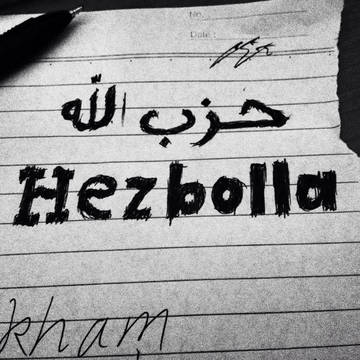 No.
Date :
حزب الله
Hezbolla
kham